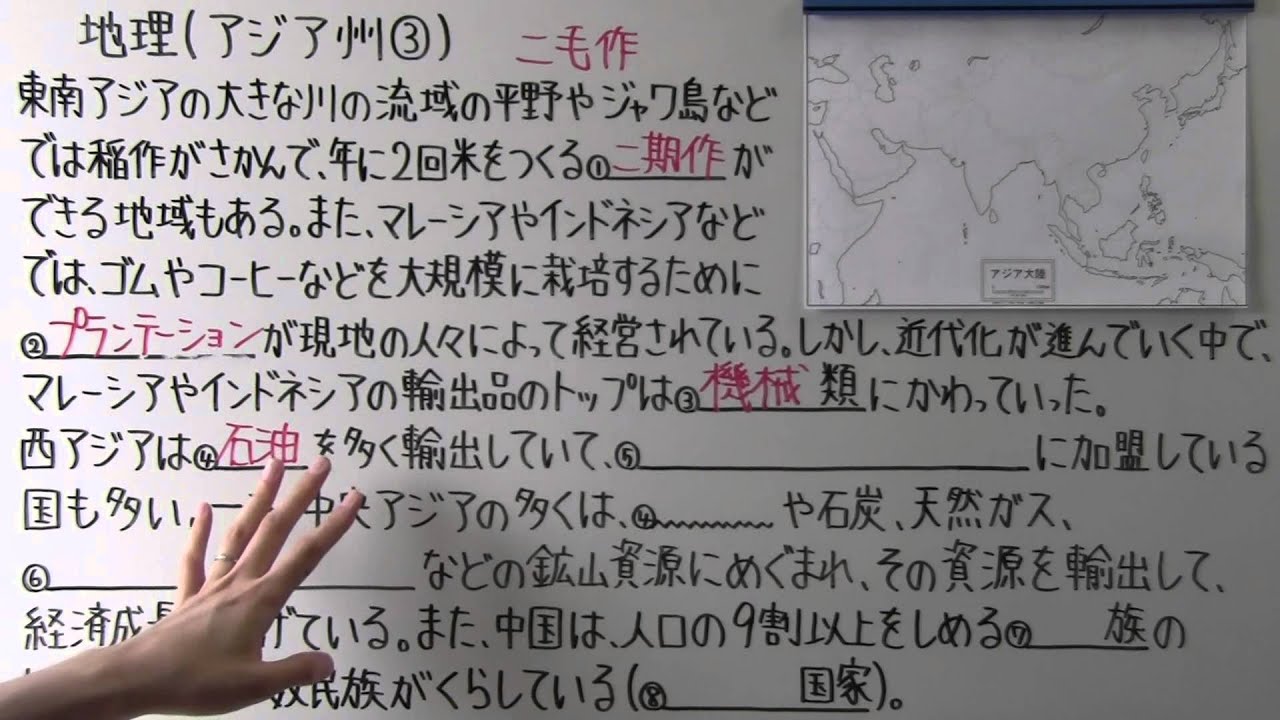 地理(アジア州③)
二毛作
東南アジアの大きな川の流域の平野やジャワ島など
では稲作がさかんで、年に2回米をつくる①二期作が
できる地域もある。また、マレーシアやインドネシアなど
では、ゴムやコーヒーなどを大規模に栽培するために
②プランテーションが現地の人々によって経営されている。しかし、近代化が進んでいく中で、
マレーシアやインドネシアの輸出品のトップは③機械類にかわっていった。
西アジアは④石油を多く輸出していて、⑤に加盟している
国も多い。一 中央アジアの多くは、④や石炭、天然ガス、
⑥などの鉱山資源にめぐまれ、その資源を輸出して、
経済成長 げている。また、中国は、人口の9割以上をしめる⑦族の
数民族がくらしている(⑧国家)。
アジア大陸